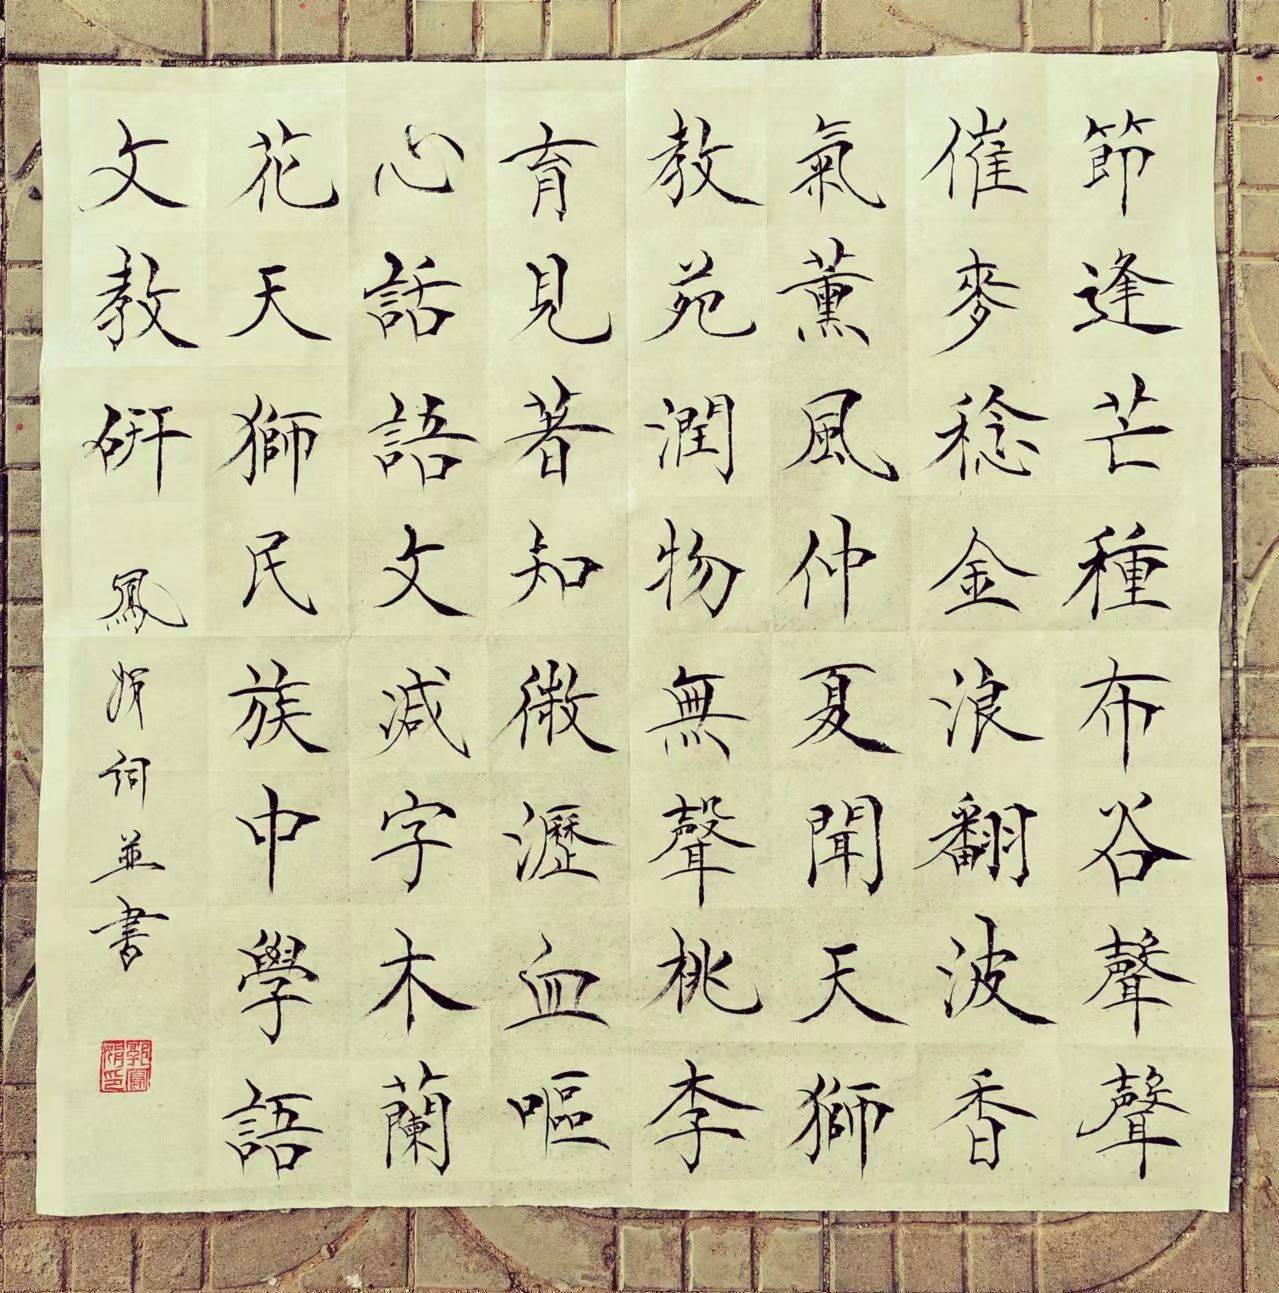 節逢芒種布谷聲聲
催麥稔金浪翻波香
氣薰風仲夏聞天獅
教苑潤物無聲桃李
育見著知微瀝血嘔
心話語文減字木蘭
花天獅民族中學語
文教研 鳳娟詞並書
郭鳳娟印